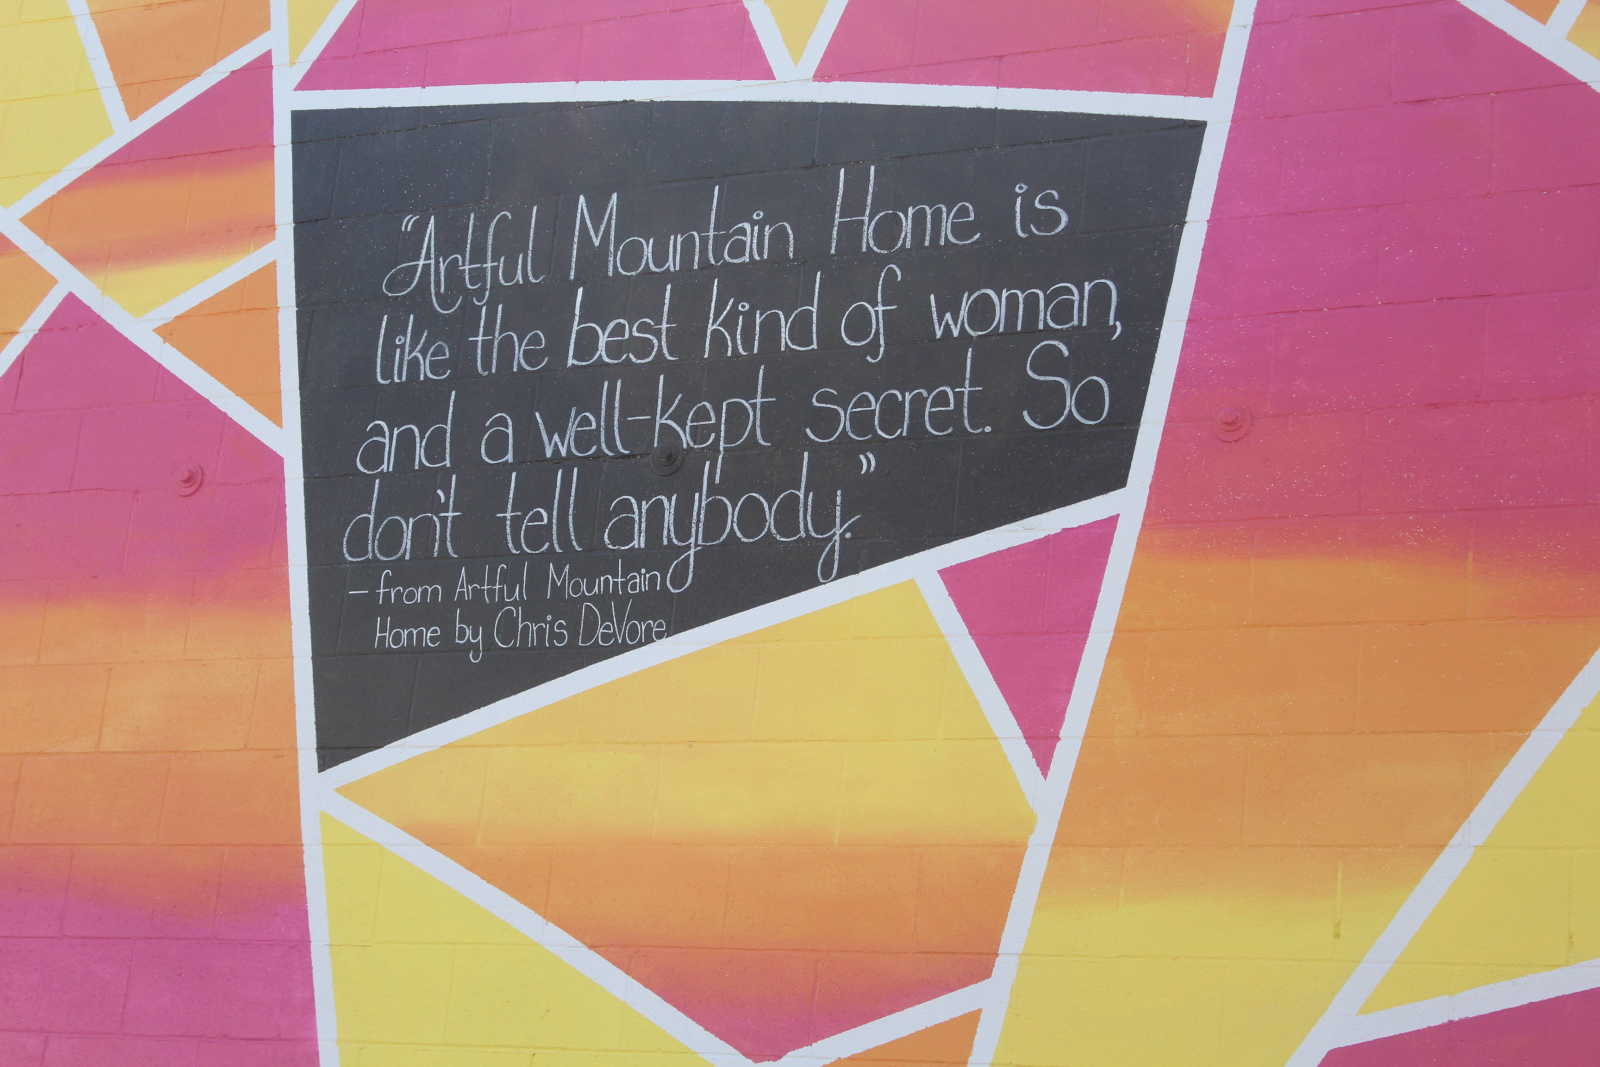 "Artful Mountain Home is
like the best kind of woman,
and a well-kept secret. So
don't tell anybody."
- from Artful Mountain
Home by Chris DeVore